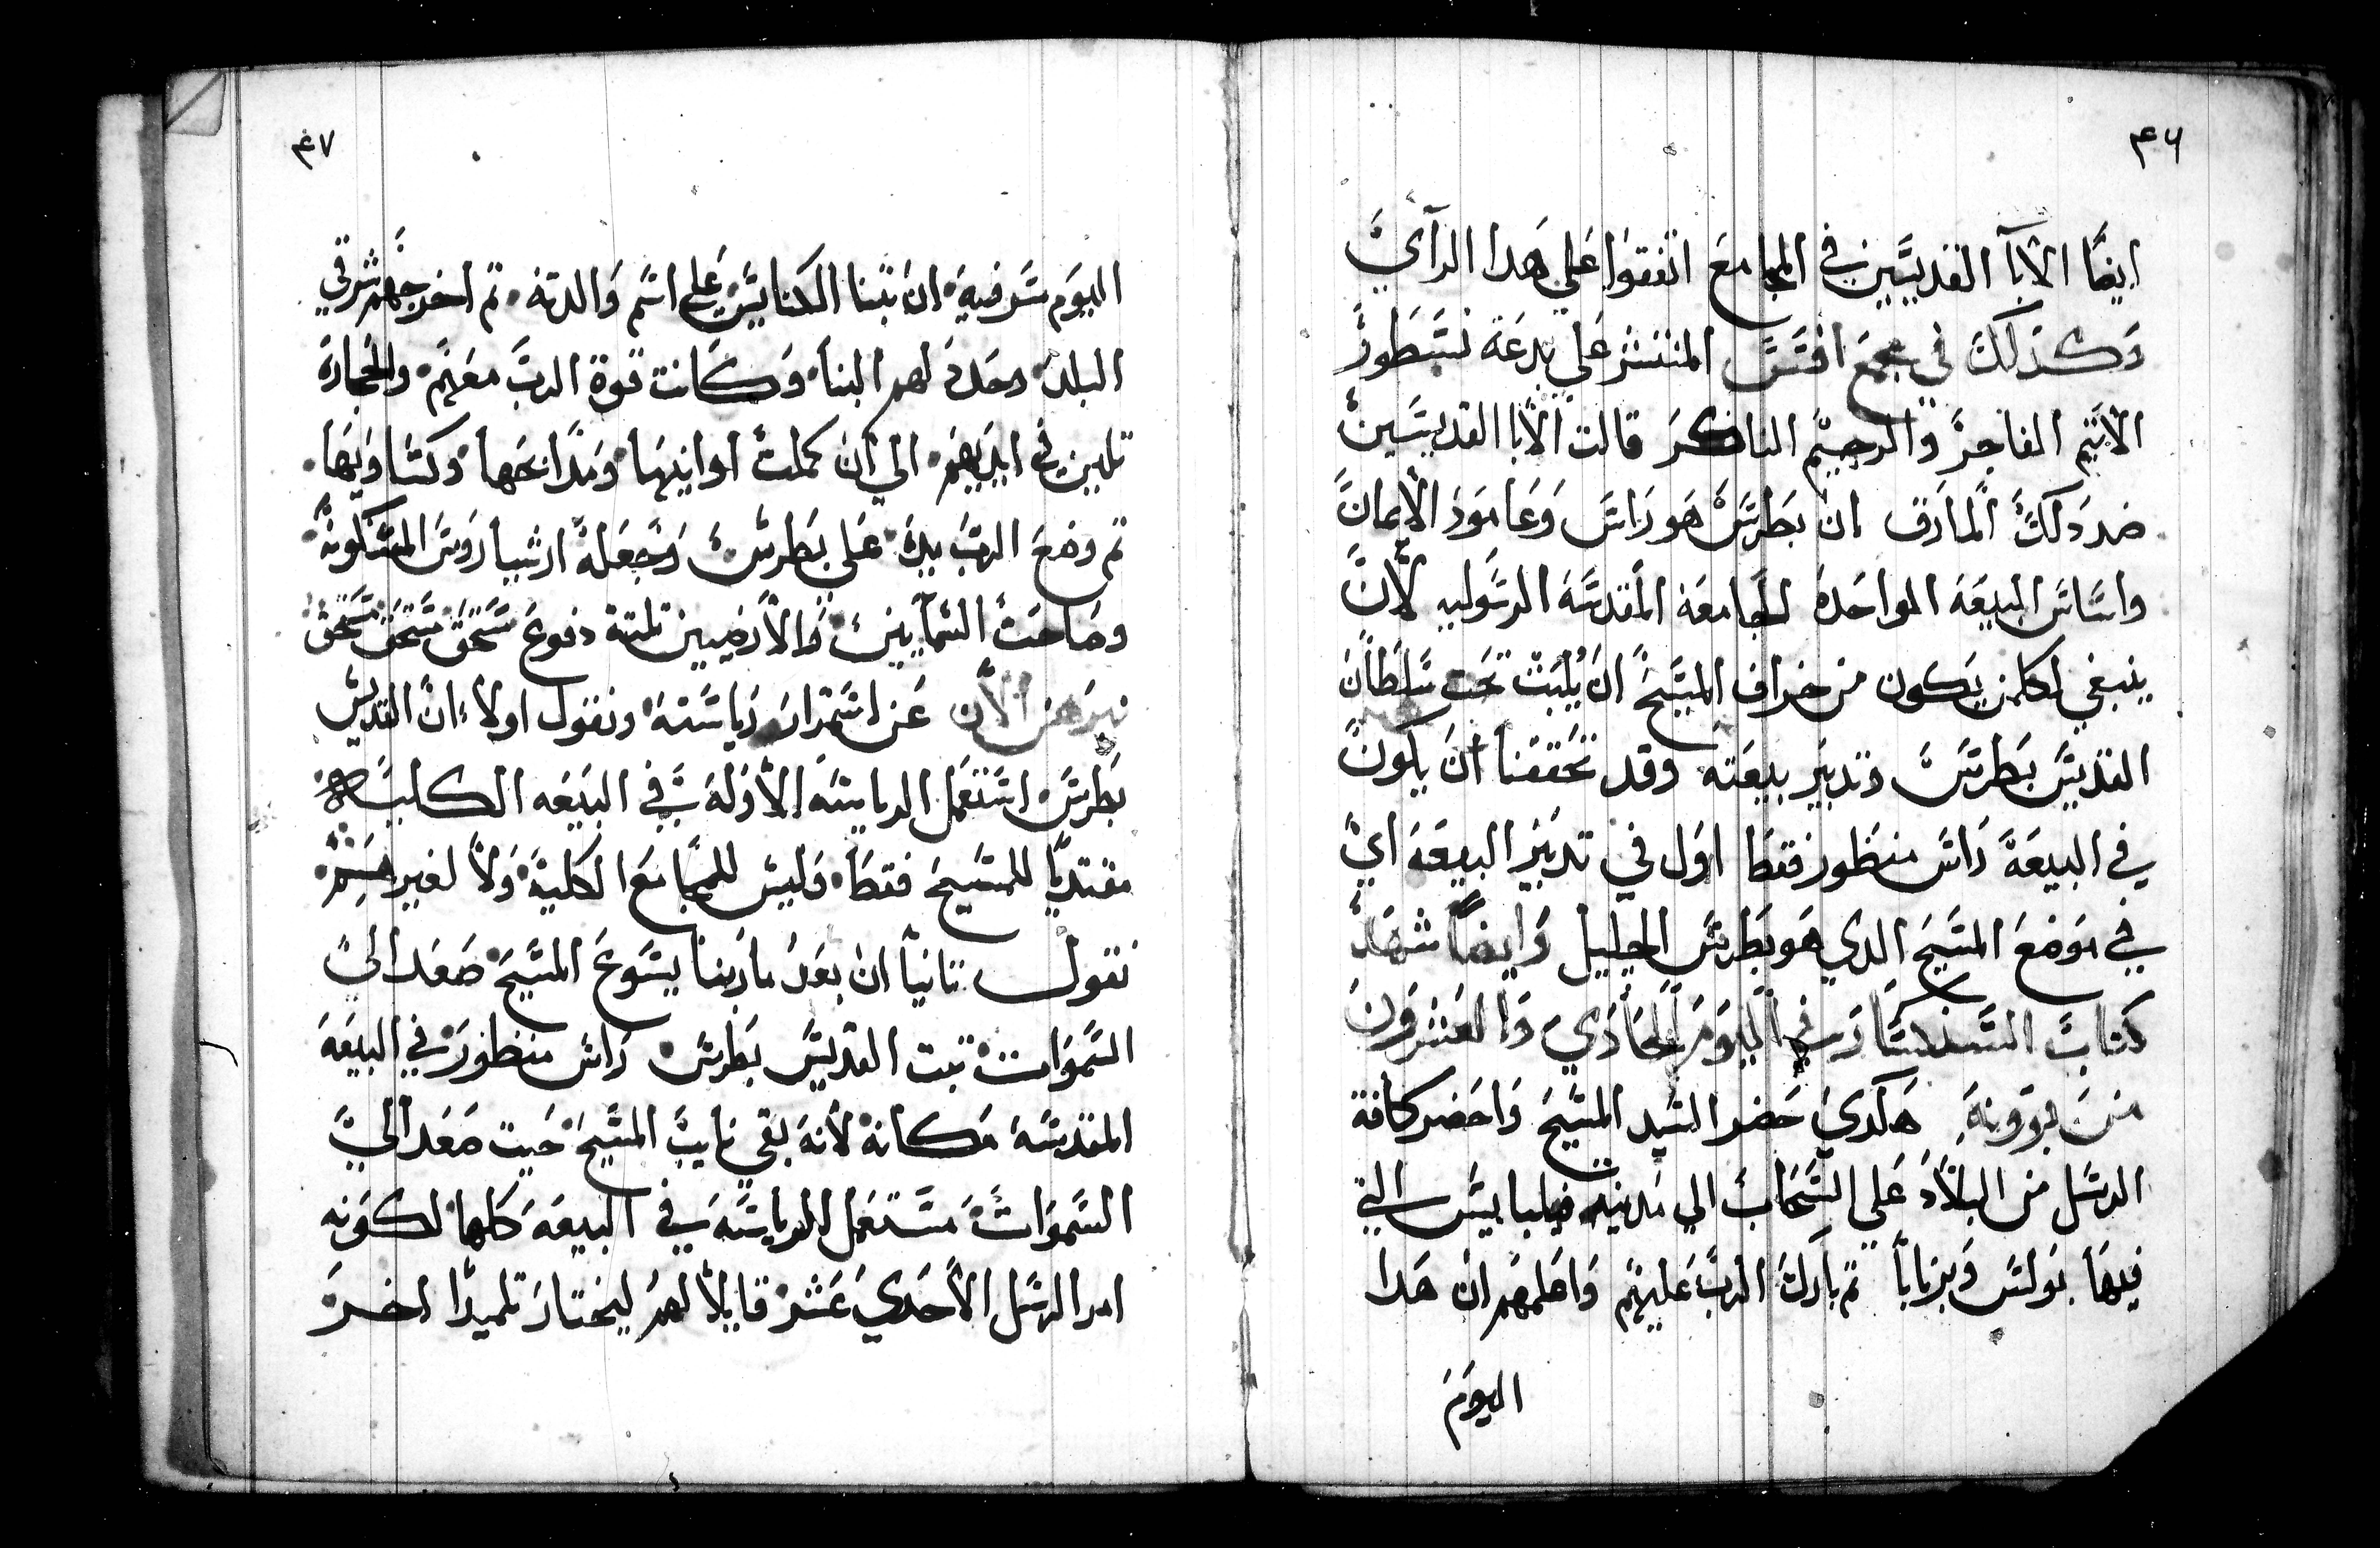 ٤٦
ايضًا الابآ القديسين في المجامع اتفقوا علي هدا الرآي
وكذلك في مجمع افسس المنتشر علي بدعة نسطور
الاثيم الفاجر والرجيم الناكر قالت الابا القديسين
ضد دلك المارق ان بطرس هو راس وعامود الايمان
واساس البيعه الواحده الجامعه المقدسه الرسوليه لان
ينبغي لكلمن يكون من خراف المسيح ان يلبث تحت سلطان
القديس بطرس وتدبير بيعته وقد تحققنا ان يكون
في البيعة راس منظور فقط اول في تدبير البيعه اي
في موضع المسيح الدي هو بطرس الجليل وايضًا شهد
كتاب السنكسار في اليوم الحادي والعشرون
من بوونه هكدي حضر السيد المسيح واحضر كافة
الرسل من البلاد علي السحاب الي مدينة فيلبايس التي
فيها بولس وبرنابا تم بارك الرب عليهم واعلمهم ان هدا
اليوم
٤٧
اليوم سر فيه ان تبنا الكنايس علي اسم والدته تم اخرجهم شرقي
البلد وحدد لهم البنا وكانت قوة الرب معهم والحجارة
تلين في ايديهم الي ان كملت اوانيها ومدابحها وكساويها
تم وضع الرب يده علي بطرس وجعله ارشيا رويس المسكونة
وصاحت السمآيين والارضيين تلتة دفوع مستحق مستحق مستحق
نبرهن الان عن استمرار رياسته ونقول اولا ان القديس
بطرس استعمل الرياسه الاوله في البيعه الكليه
مقتديًا للمسيح فقط وليس للمجامع الكلية ولا لغيرهم
نقول تانيًا ان بعد ما ربنا يسوع المسيح صعد الي
السموات تبت القديس بطرس راس منظور في البيعه
المقدسه مكانه لانه بقي نايب المسيح حيت صعد الي
السموات مستعمل الرياسه في البيعه كلها لكونه
امر الرسل الاحدي عشر قايلا لهم ليختار تلميدا اخر